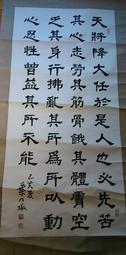 天將降大任於是人也必先苦
其心志勞其筋骨餓其體膚空
乏其身行拂亂其所為所以動
心忍性曾益其所不能